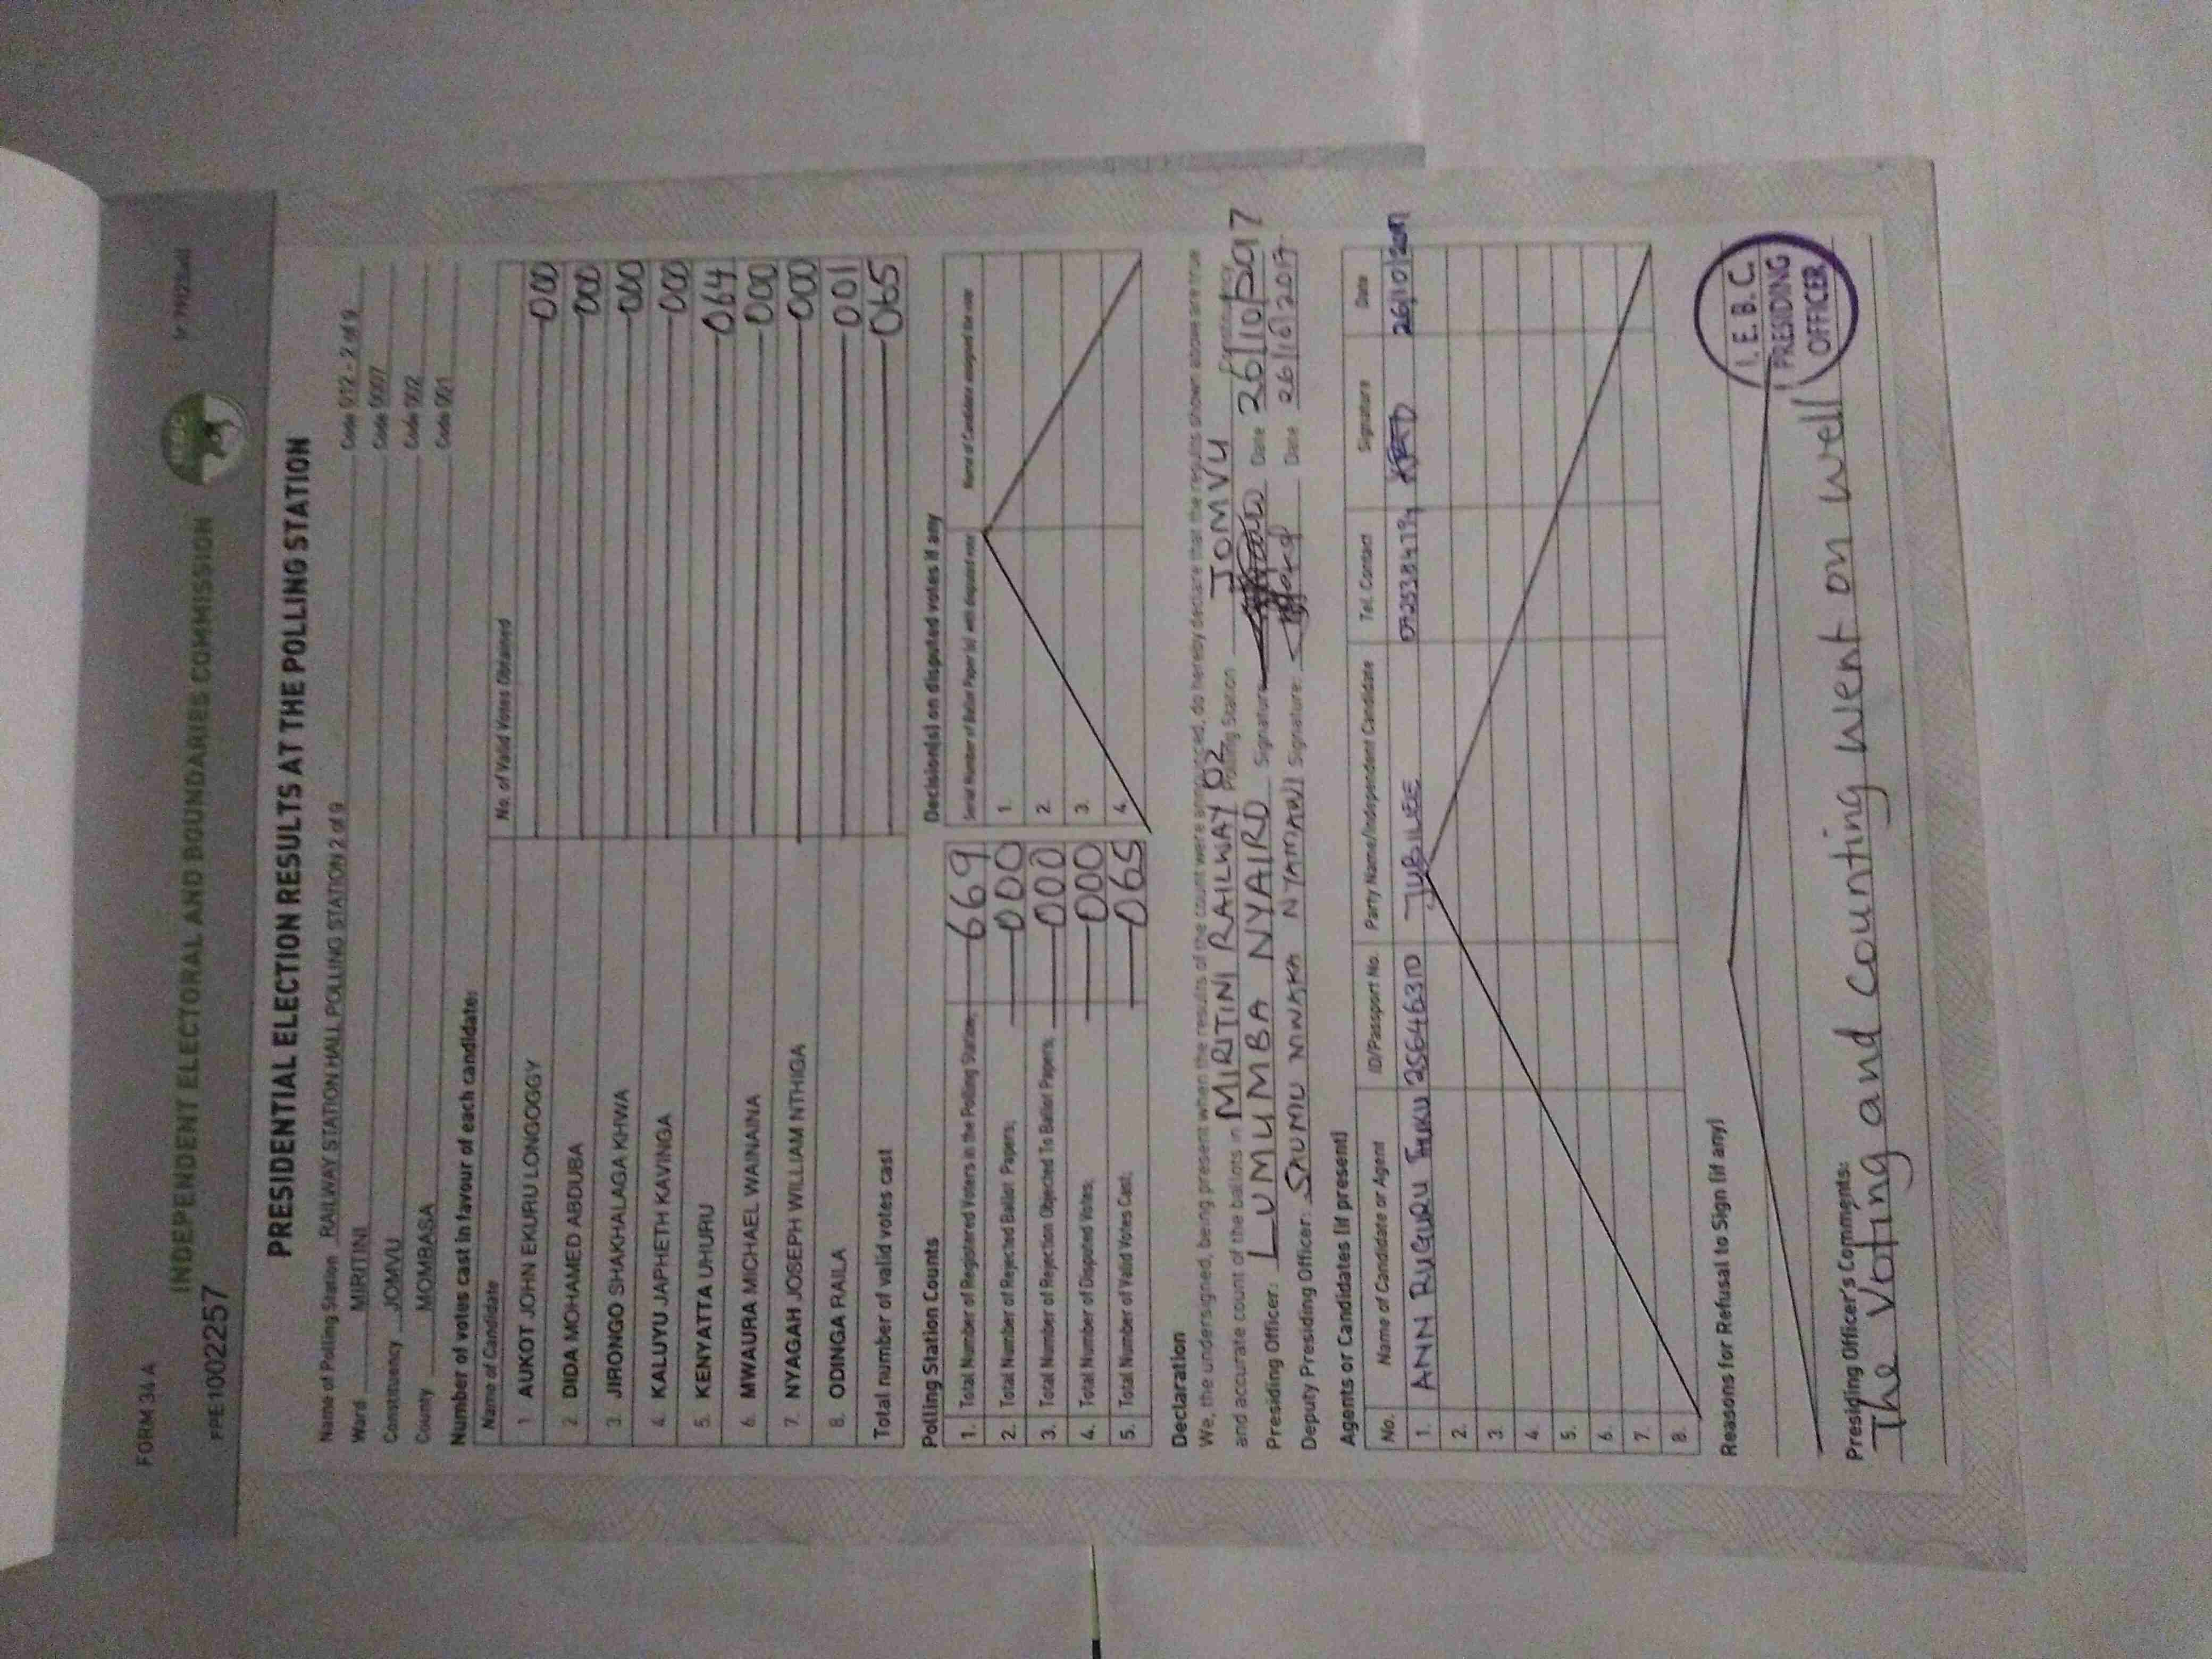 FORM 34 A
INDEPENDENT ELECTORAL AND BOUNDARIES COMMISSION
PRESIDENTIAL ELECTION RESULTS AT THE POLLING STATION
Name of Polling Station RAILWAY STATION HALL POLLING STATION 2 of 9 Code 012 - 2 of 9
Ward MIRITINI Code 0007
Constituency JOMVU Code 002
County MOMBASA Code 001
Number of votes cast in favour of each candidate:
Name of Candidate No. of Valid Votes Obtained
1 AUKOT JOHN EKURU LONGOGGY 000
2 DIDA MOHAMED ABDUBA 000
3. JIRONGO SHAKHALAGA KHWA 000
4. KALUYU JAPHETH KAVINGA 000
5. KENYATTA UHURU 064
6. MWAURA MICHAEL WAINAINA 000
7. NYAGAH JOSEPH WILLIAM NTHIGA 000
8. ODINGA RAILA 001
Total number of valid votes cast 065
Polling Station Counts
1. Total Number of Registered Voters in the Polling Station; 669
2. Total Number of Rejected Ballot Papers; 000
3. Total Number of Rejection Objected To Ballot Papers; 000
4. Total Number of Disputed Votes; 000
5. Total Number of Valid Votes Cast; 065
Decision(s) on disputed votes if any
Serial Number of Ballot Paper (s) with disputed vote Name of Candidate assigned the vote
1.
2.
3.
4.
Declaration
We, the undersigned, being present when the results of the count were announced, do hereby declare that the results shown above are true
and accurate count of the ballots in MIRITINI RAILWAY 02 Polling Station JOMVU
Presiding Officer: LUMUMBA NYAIRO Signature Date 26/10/2017
Deputy Presiding Officer: SAUMU MWAKA NYAMAWI Signature: Date 26/10/2017
Agents or Candidates (if present)
No. Name of Candidate or Agent ID/Passport No. Party Name/Independent Candidate Tel. Contact Signature Date
1. ANN RUGURU THUKU 25646310 JUBILEE 26/10/2017
2.
3.
4.
5.
6.
7.
8.
Reasons for Refusal to Sign (if any)
Presiding Officer's Comments:
The Voting and Counting went on well
I.E.B.C.
PRESIDING
OFFICER